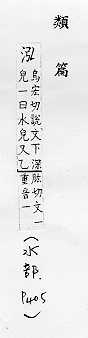 類篇
泓
烏宏切說文下深皃一曰水皃又乙肱切文一重音一
(水部.P405)